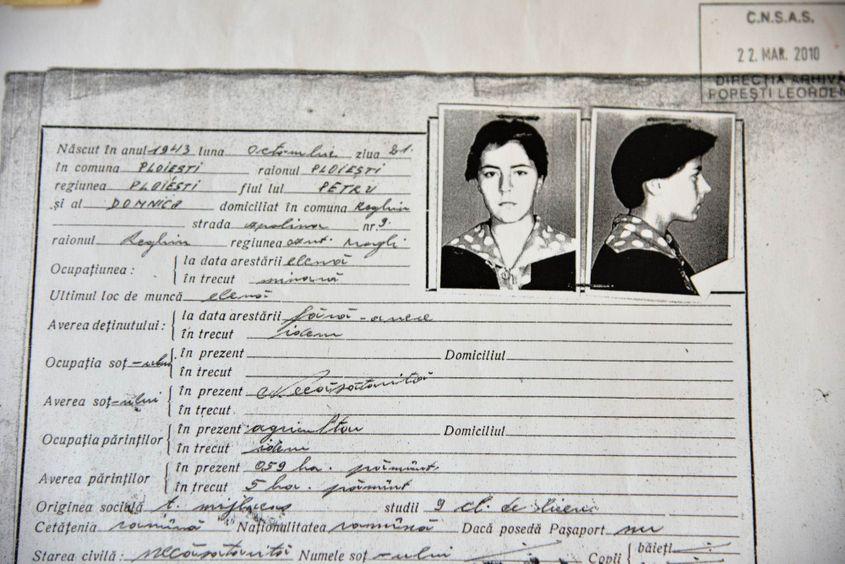 C.N.S.A.S.
22. MAR. 2010
DIRECȚIA ARHIVA
POPEȘTI LEORDEN
Născut în anul 1943 luna Octombrie ziua 21.
în comuna PLOIEȘTI raionul PLOIEȘTI
regiunea PLOIEȘTI fiul lui PETRU
și al DOMNICA domiciliat în comuna Reghin
strada nr. 9.
raionul Reghin regiunea aut. Magh.
Ocupațiunea : la data arestării elevă
în trecut minoră
Ultimul loc de muncă elevă
Averea deținutului : la data arestării fără-avere
în trecut idem
Ocupația soț-ului în prezent Domiciliul
în trecut
Averea soț-ului în prezent Necăsătorită
în trecut
Ocupația părinților în prezent agricultor Domiciliul
în trecut idem
Averea părinților în prezent 0,59 ha. pământ
în trecut 5 ha. pământ
Originea socială t. mijlocaș studii 9 cl. de liceu
Cetățenia română Naționalitatea română Dacă posedă Pașaport nu
Starea civilă : necăsătorită Numele soț-ului Copii băieți